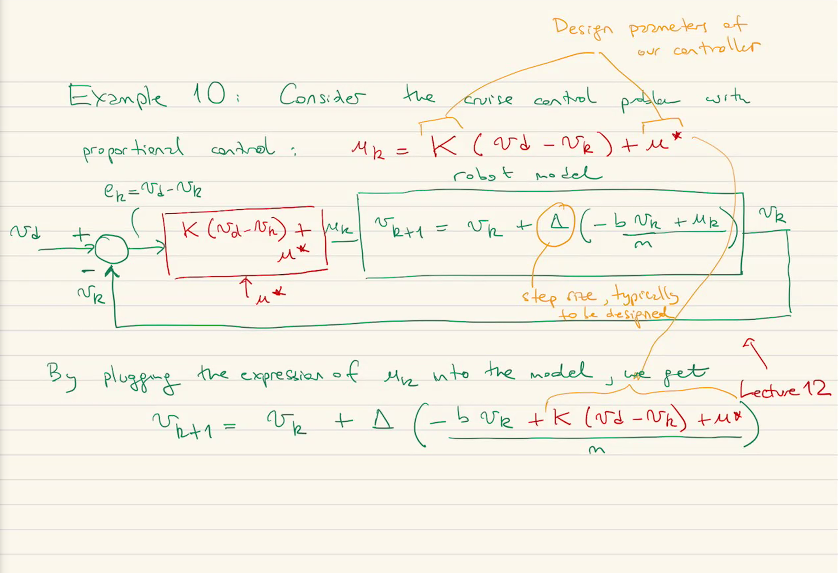 Design parmeters of
our controller
Example 10: Consider the cruise control problem with
proportional control: u_k = K (v_d - v_k) + u*
robot model
e_k = v_d - v_k
v_d + K (v_d - v_k) + u* u_k v_{k+1} = v_k + Δ (-b v_k + u_k / m) v_k
-
v_k u*
step size, typically
to be designed
By plugging the expression of u_k into the model, we get
Lecture 12
v_{k+1} = v_k + Δ (-b v_k + K (v_d - v_k) + u* / m)